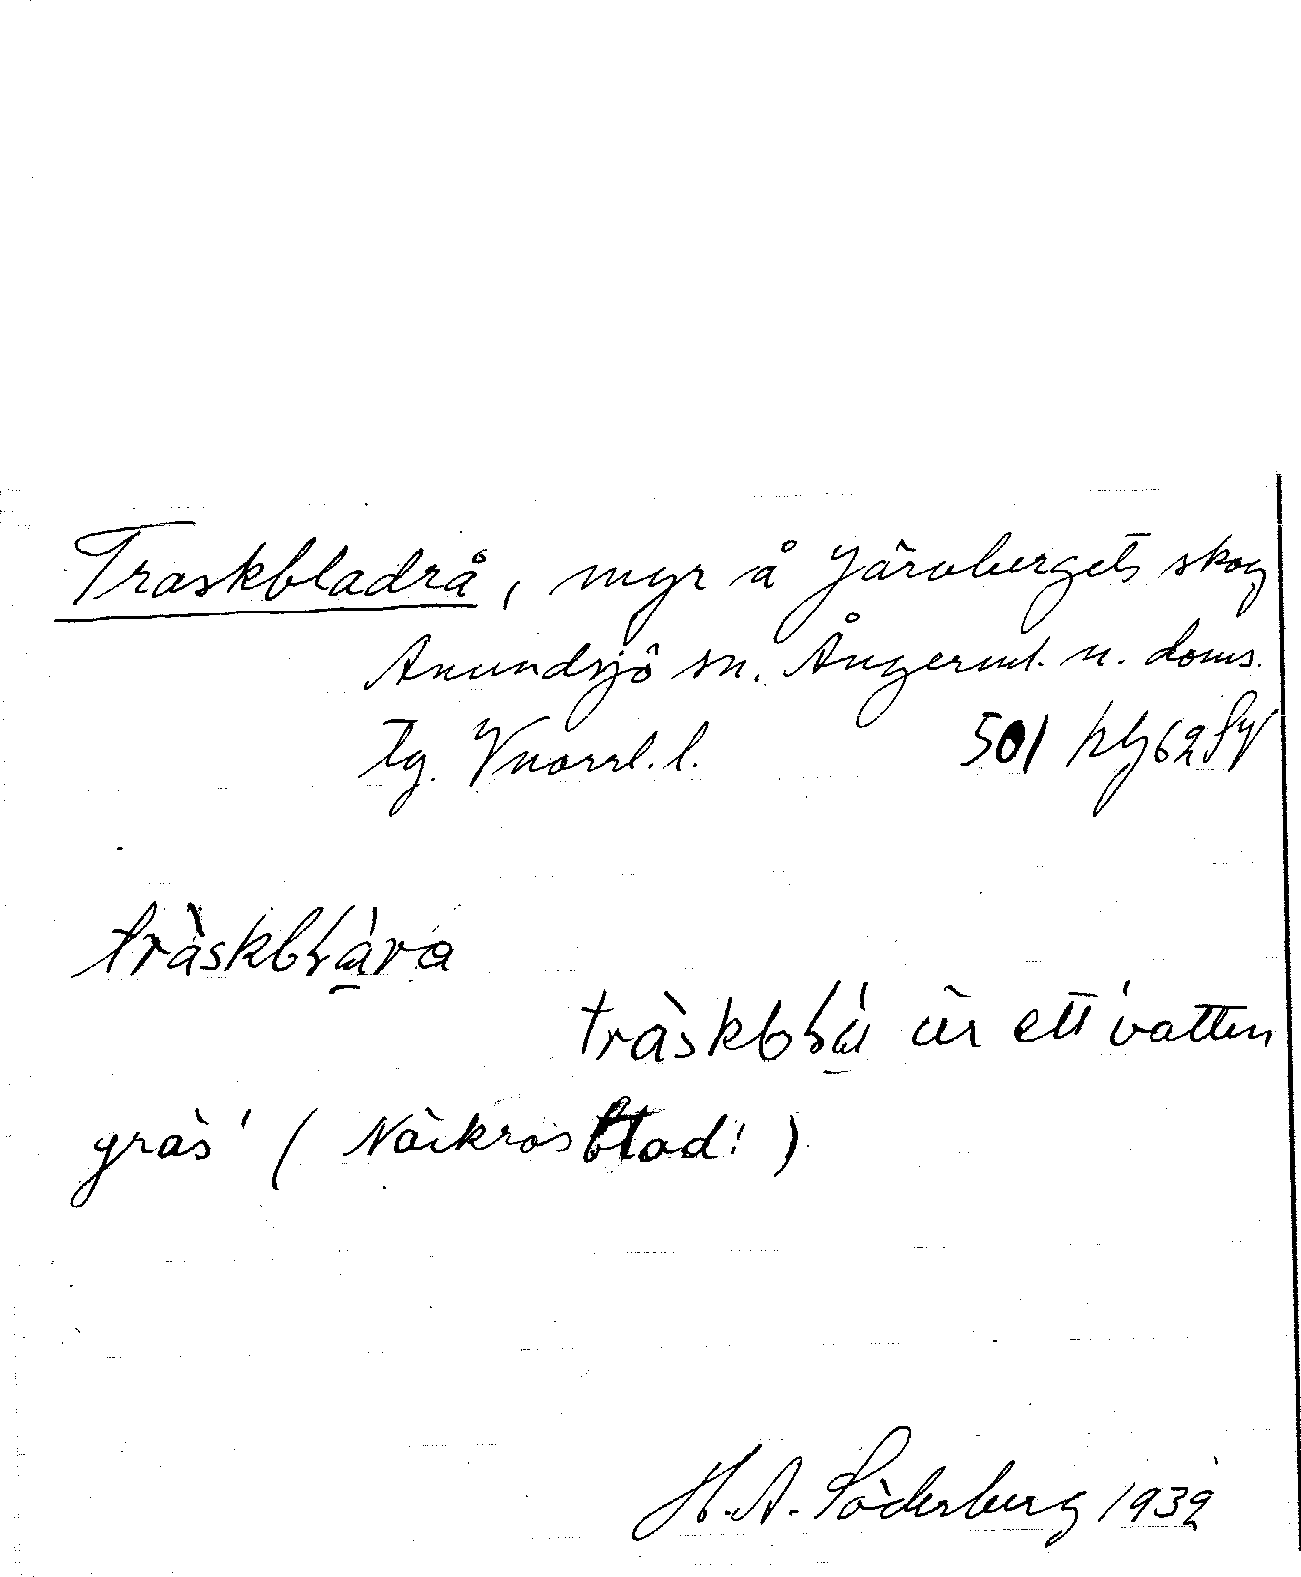 Traskbladrå, myr å Järvbergets skog
Anundsjö sn. Ångerml. n. doms.
tg. Vnorrl. l. 501
träskb
träskb är ett 'vatten
gräs' (Näckrosblad!)
H. A. Söderberg 1932